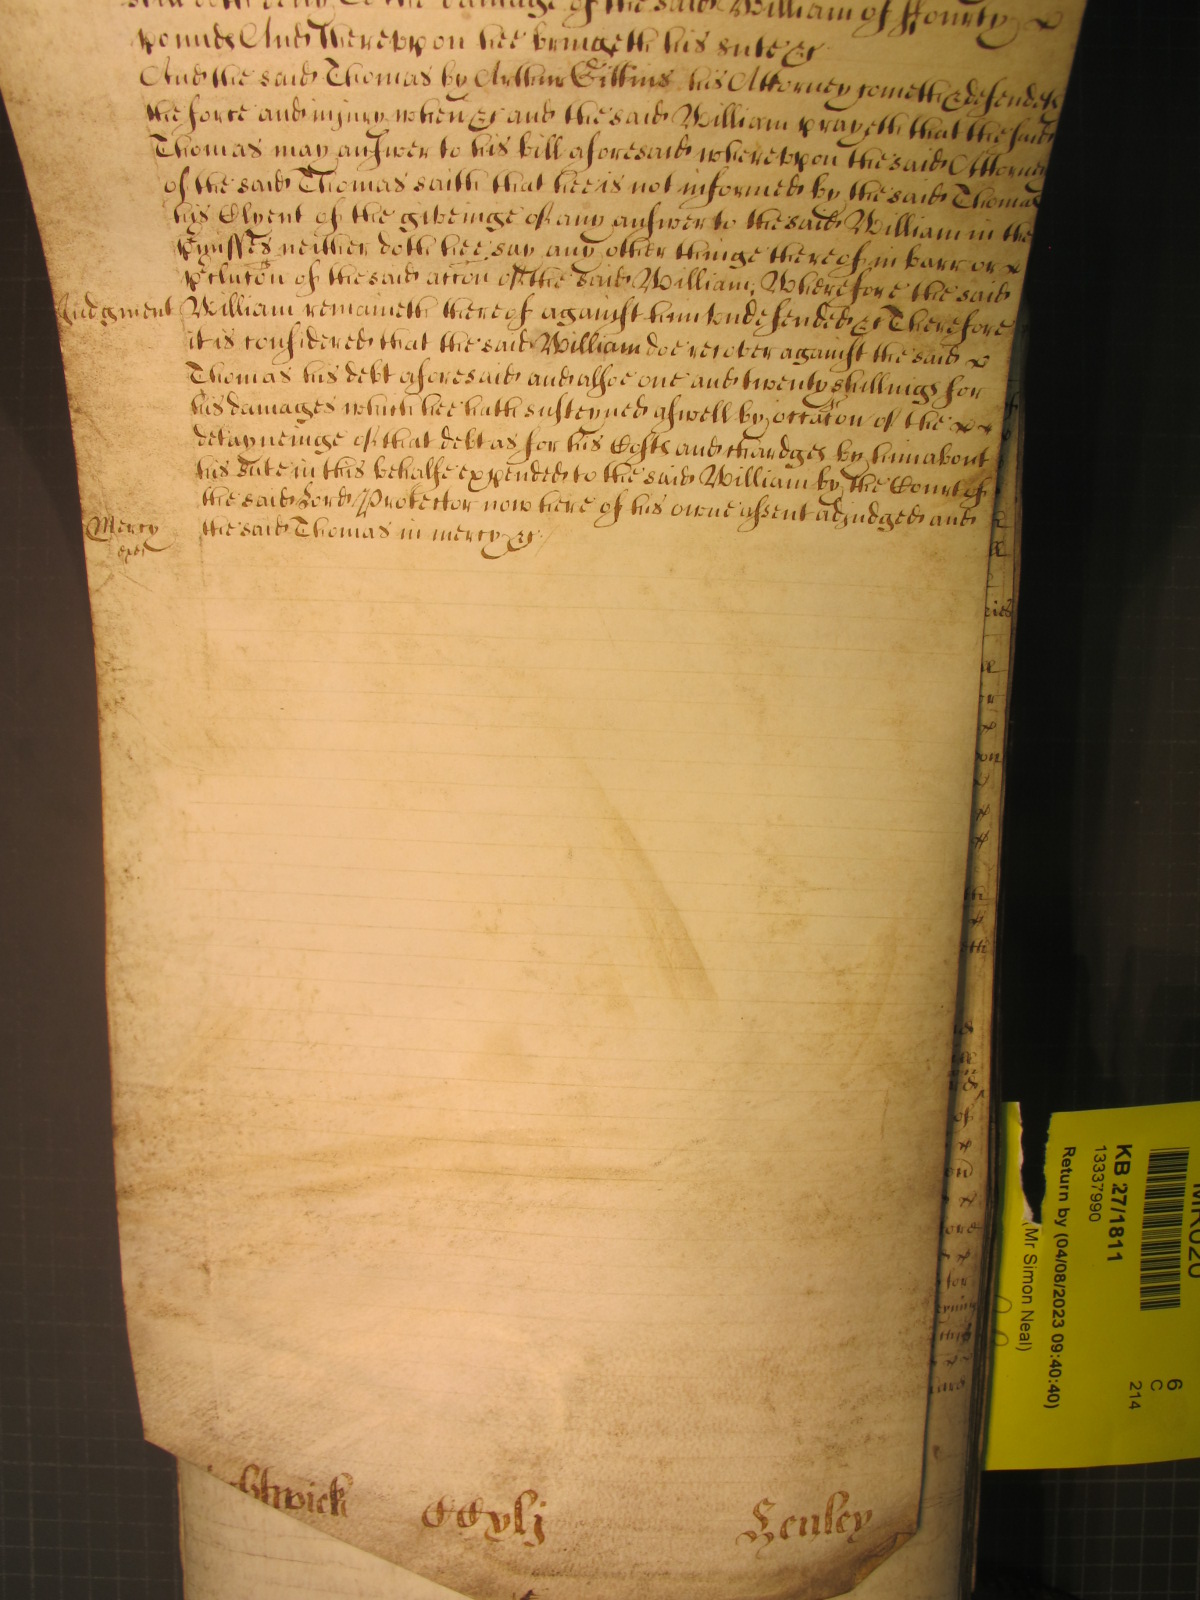 doth deny To the damage of the said William of ffourty
pounds And thereuppon hee bringeth his sute &c
And the said Thomas by Arthur Gittins his Attorney cometh & defendeth
the force and injury when &c and the said William prayeth that the said
Thomas may answer to his bill aforesaid whereuppon the said Attorney
of the said Thomas saith that hee is not informed by the said Thomas
his Clyent of the giveinge of any answer to the said William in the
p̄misses neither doth hee say any other thinge thereof in barr or
p̄clucōn of the said accōn of the said William, Wherefore the said
Judgment William remaineth thereof against him undefended &c Therefore
it is considered that the said William doe recover against the said
Thomas his debt aforesaid and alsoe one and twenty shillings for
his damages which hee hath susteyned aswell by occacōn of the
detayneinge of that debt as for his Costs and chardges by him about
his sute in this behalfe expended to the said William by the Court of
the said Lord Protector now here of his owne assent adjudged and
Mercy the said Thomas in mercy &c
htwick CCxlj Henley
KB 27/1811
13337990
Return by (04/08/2023 09:40:40)
(Mr Simon Neal)
6
C
214